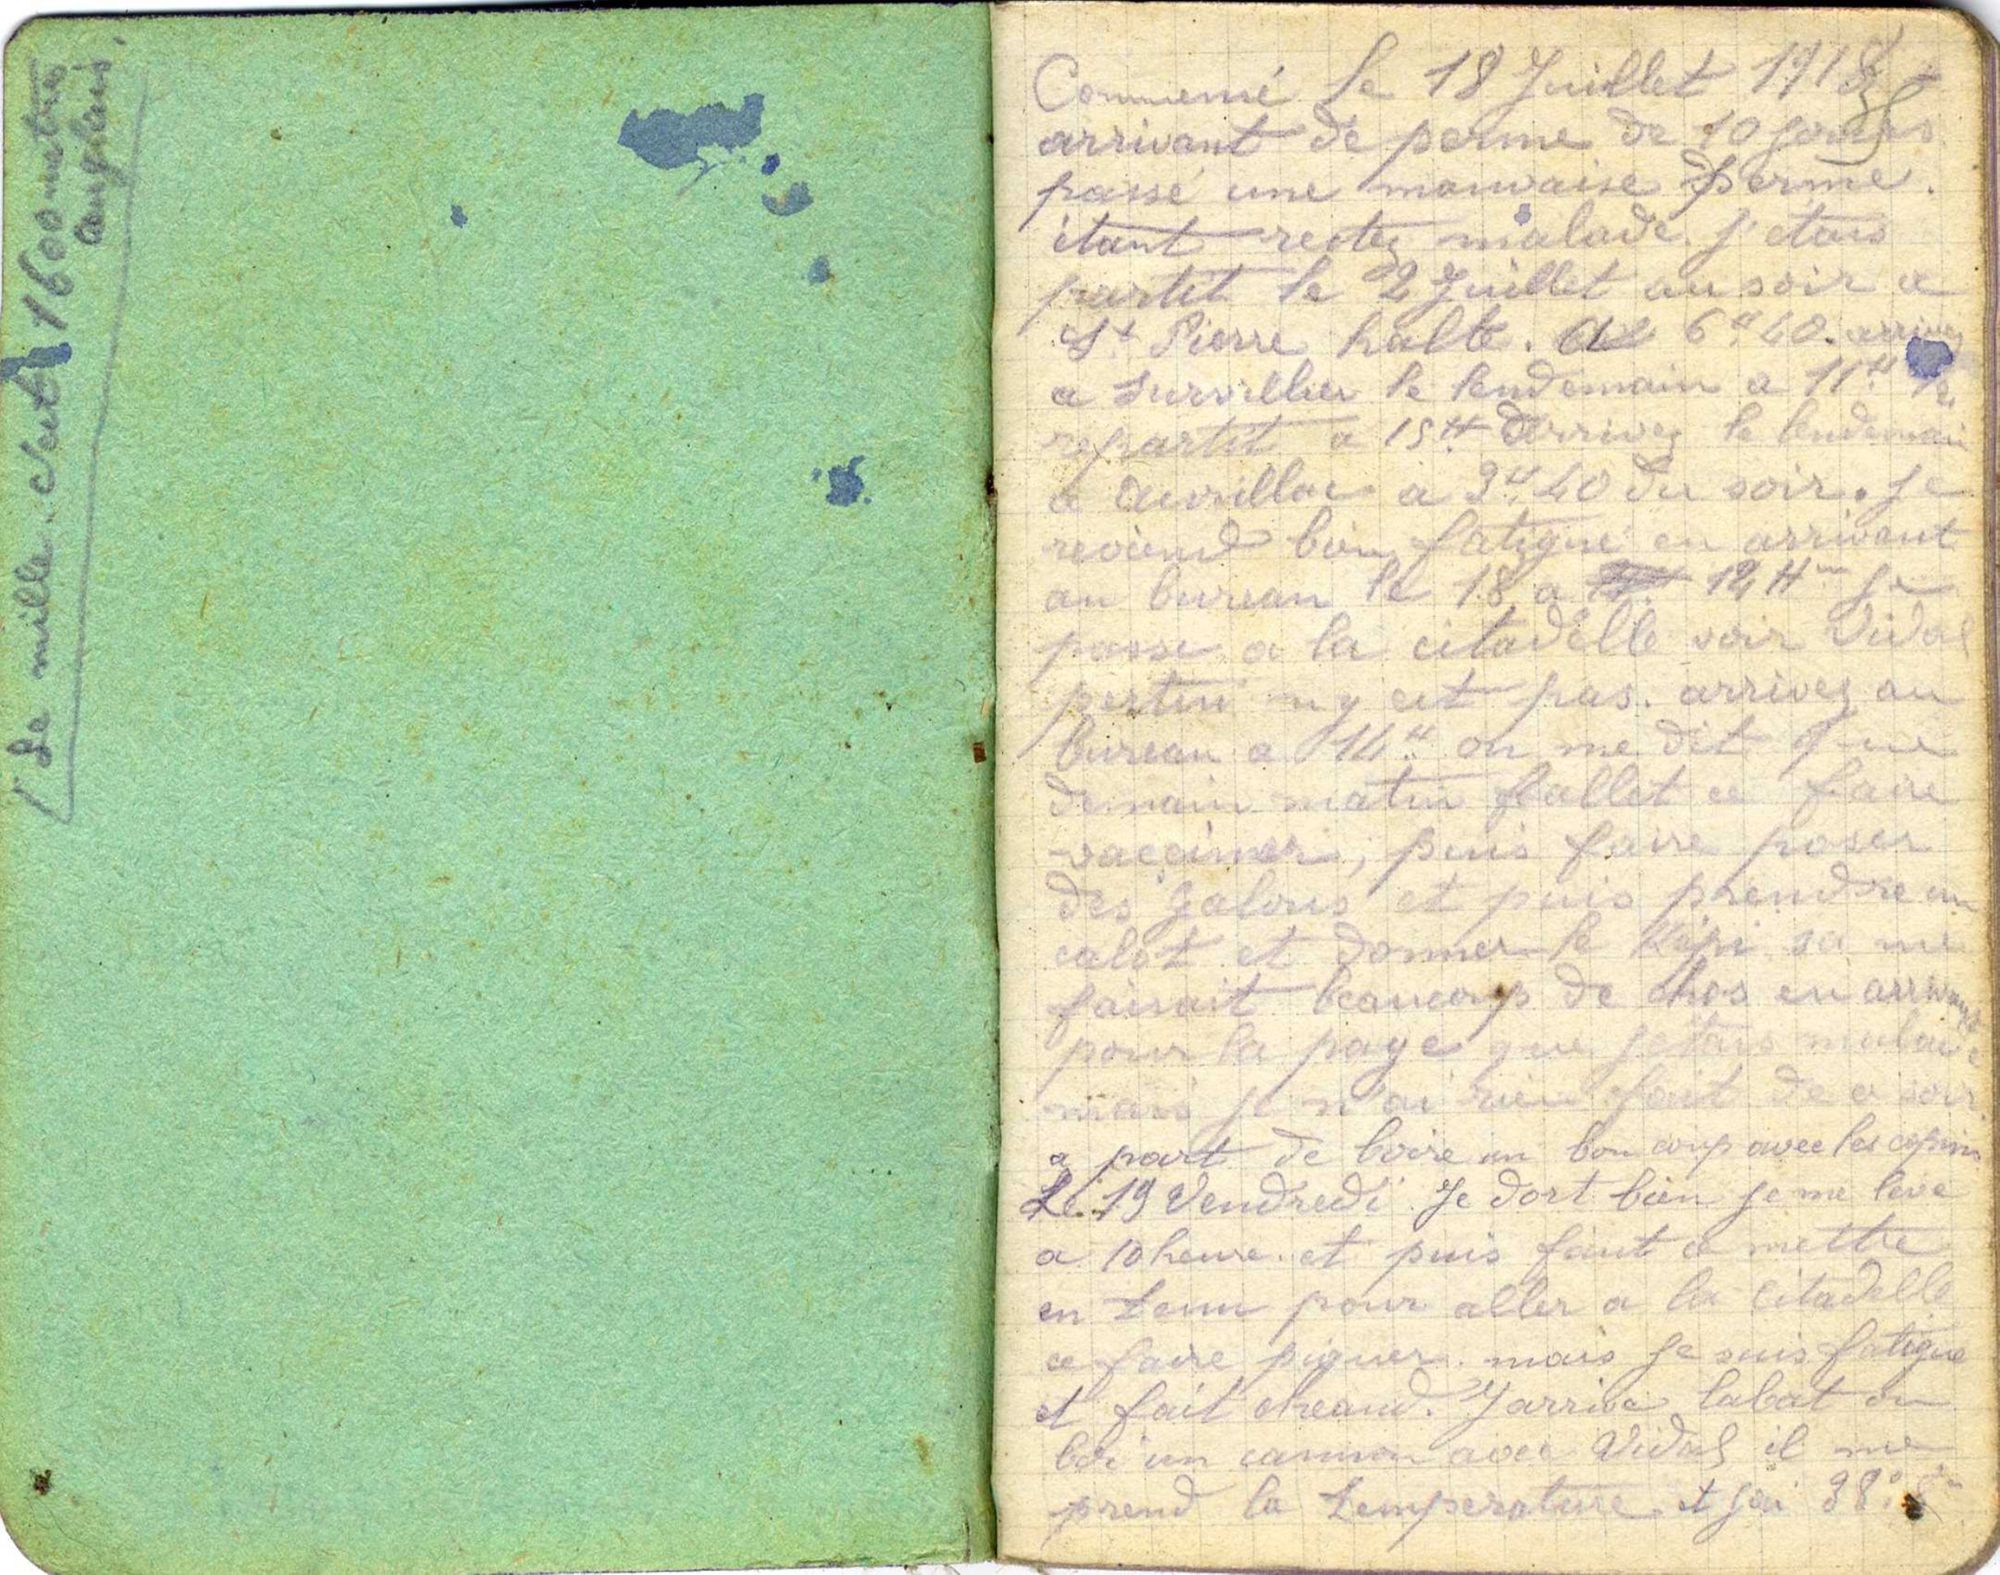 (Le mille. c'est 1600 metres
anglais.
Commencé le 18 Juillet 1918
arrivant de perme de 10 jours
passé une mauvaise perme.
étant restez malade. j'etais
partit le 2 Juillet au soir a
St Pierre halte. 6H40. arrivez
a Survillier le lendemain a 11H
repartit a 15H arrivez le lendemain
a a 3H.40 du soir. Je
reviend bien fatigue en arrivant
au bureau le 18 a 12H je
passe a la citadelle voir Vidal
pertin n'y est pas. arrivez au
bureau a 14H on me dit que
demain matin fallet ce faire
vaccimer, puis faire poser
des galons et puis prendre un
calot et donner le Képi sa me
faisait beaucoups de chos en arrivant
pour la paye que jetais malade
mais je n'ai rien fait de ce soir.
a part de boire un bon coup avec les copins
Le 19 Vendredi Je dort bien je me leve
a 10 heure. et puis faut ce mettre
en tenu pour aller a la citadelle
ce faire piquer. mais je suis fatigue
et fait cheaud. J'arrive labat on
boi un cannon avec Vidal il me
prend la temperature et j'ai 38°.8